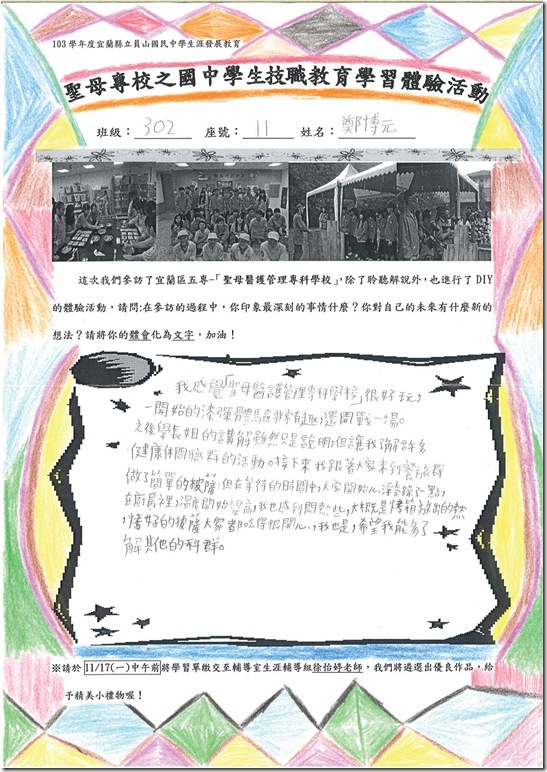 103學年度宜蘭縣立員山國民中學生涯發展教育
聖母專校之國中學生技職教育學習體驗活動
班級：302 座號：11 姓名：鄭博元
這次我們參訪了宜蘭區五專-「聖母醫護管理專科學校」，除了聆聽解說外，也進行了DIY
的體驗活動，請問：在參訪的過程中，你印象最深刻的事情什麼？你對自己的未來有什麼新的
想法？請將你的體會化為文字，加油！
我感覺「聖母醫護管理專科學校」很好玩，
一開始的漆彈體驗非常有趣，還開戰一場。
之後學長姐的講解雖然只是說明，但讓我了解許多
健康休閒職群的活動。接下來我跟著大家來到餐旅群
做了簡單的披薩，但在等待的時間中，大家開始心浮氣躁了一點，
在廚房裡，溫度開始變高，我也感到悶熱些，大概是烤箱放出的熱
，烤好的披薩大家都吃得很開心，我也是，希望我能多了
解其他的科群。
※請於 11/17(一)中午前將學習單繳交至輔導室生涯輔導組徐怡婷老師，我們將遴選出優良作品，給
予精美小禮物喔！